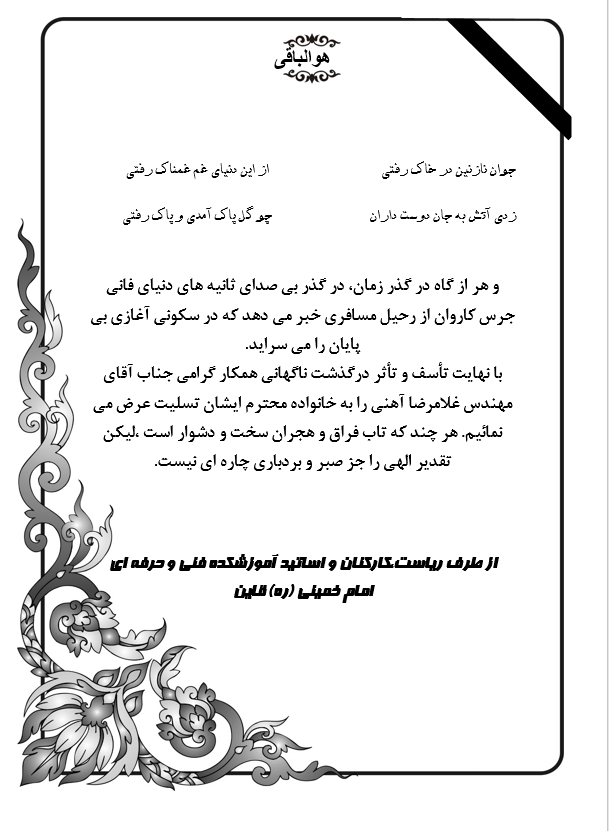 هوالباقی
جوان نازنین در خاک رفتی از این دنیای غم غمناک رفتی
زدی آتش به جان دوست داران چو گل پاک آمدی و پاک رفتی
و هر از گاه در گذر زمان، در گذر بی صدای ثانیه های دنیای فانی
جرس کاروان از رحیل مسافری خبر می دهد که در سکونی آغازی بی
پایان را می سراید.
با نهایت تأسف و تأثر درگذشت ناگهانی همکار گرامی جناب آقای
مهندس غلامرضا آهنی را به خانواده محترم ایشان تسلیت عرض می
نمائیم. هر چند که تاب فراق و هجران سخت و دشوار است ،لیکن
تقدیر الهی را جز صبر و بردباری چاره ای نیست.
از طرف ریاست،کارکنان و اساتید آموزشکده فنی و حرفه ای
امام خمینی (ره) قاین